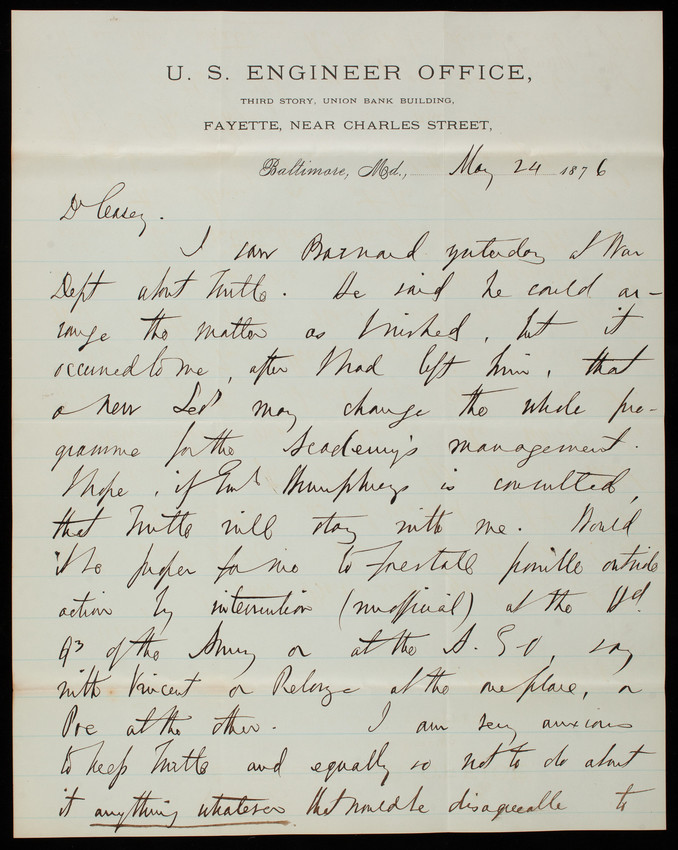 U. S. ENGINEER OFFICE,
THIRD STORY, UNION BANK BUILDING,
FAYETTE, NEAR CHARLES STREET,
Baltimore, Md., May 24 1876
Dr Casey.
I saw Barnard yesterday at War
Dept about Turtle. He said he could ar-
range the matter as I wished, but it
occurred to me, after I had left him, that
a new may change the whole pro-
gramme for the Academy's management.
I hope, if Genl Humphreys is consulted,
that Turtle will stay with me. Would
it be proper for me to forestall possible outside
action by intervention (unofficial) at the Hd.
Qs of the Army or at the A. G O, say
with Vincent or at the one place, or
Poe at the other. I am very anxious
to keep Turtle and equally so not to do about
it anything whatever that would be disagreeable to